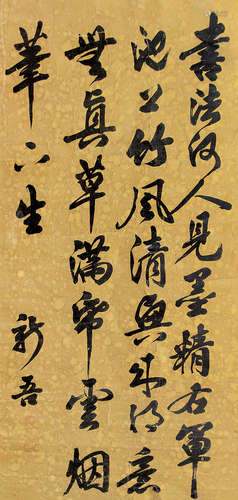 書法何人見墨精右軍
池上竹風清興來得意
無真草滿紙雲烟
筆下生
新吾